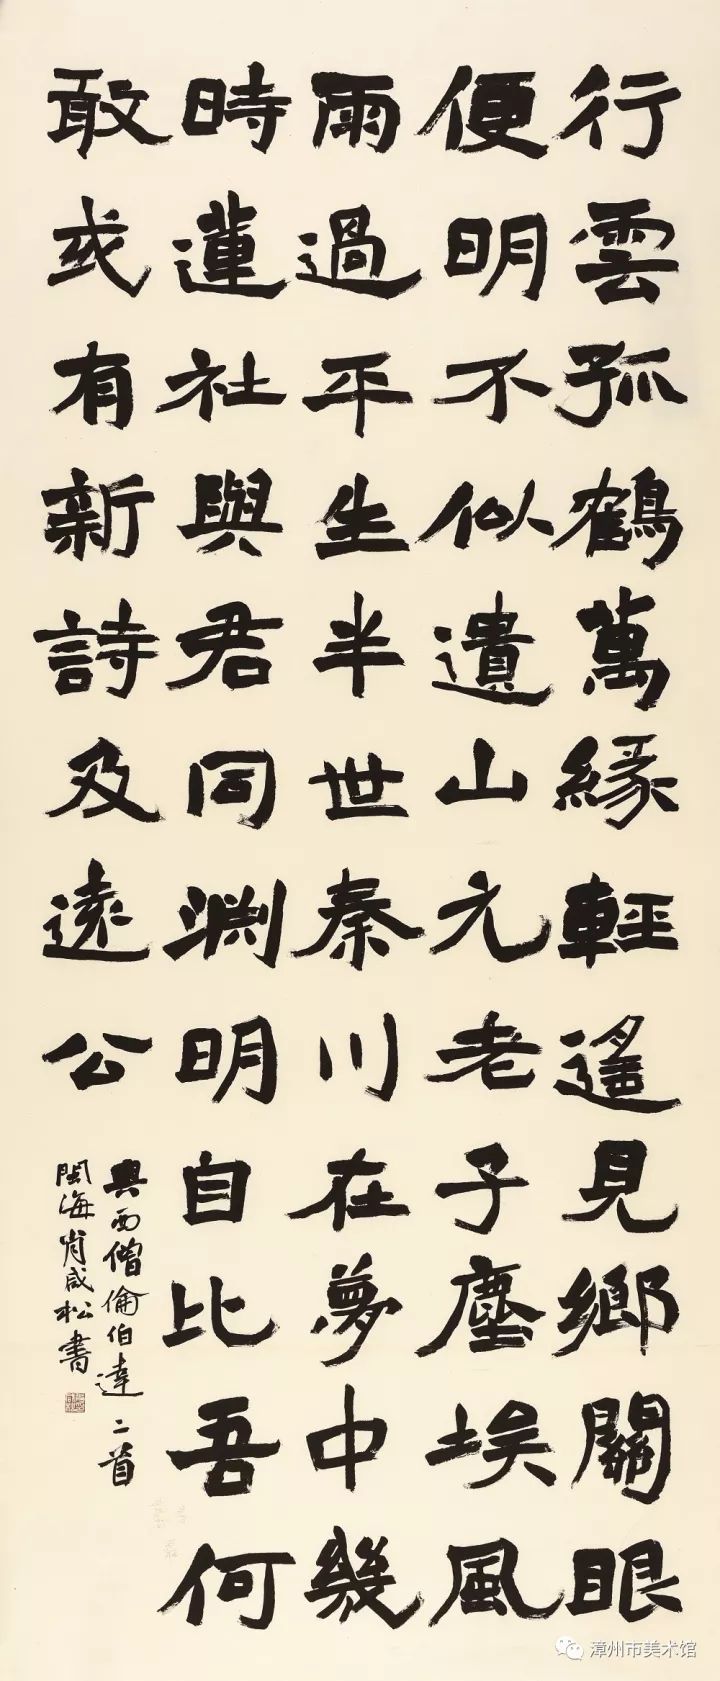 行雲孤鶴萬緣輕遙見鄉關眼
便明不似遺山元老子塵埃風
雨過平生半世秦川在夢中幾
時蓮社與君同淵明自比吾何
敢或有新詩及遠公
與西僧倫伯達二首
閩海肖咸松書
漳州市美术馆